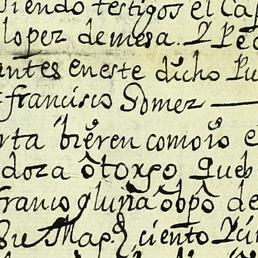 siendo testigos el Cap
lopez de mesa. Y Pe
antes en este dicho Pu
francisco Gomez
rta bieren como io el
doza otorgo que
franco obpo de
Su Magd ciento